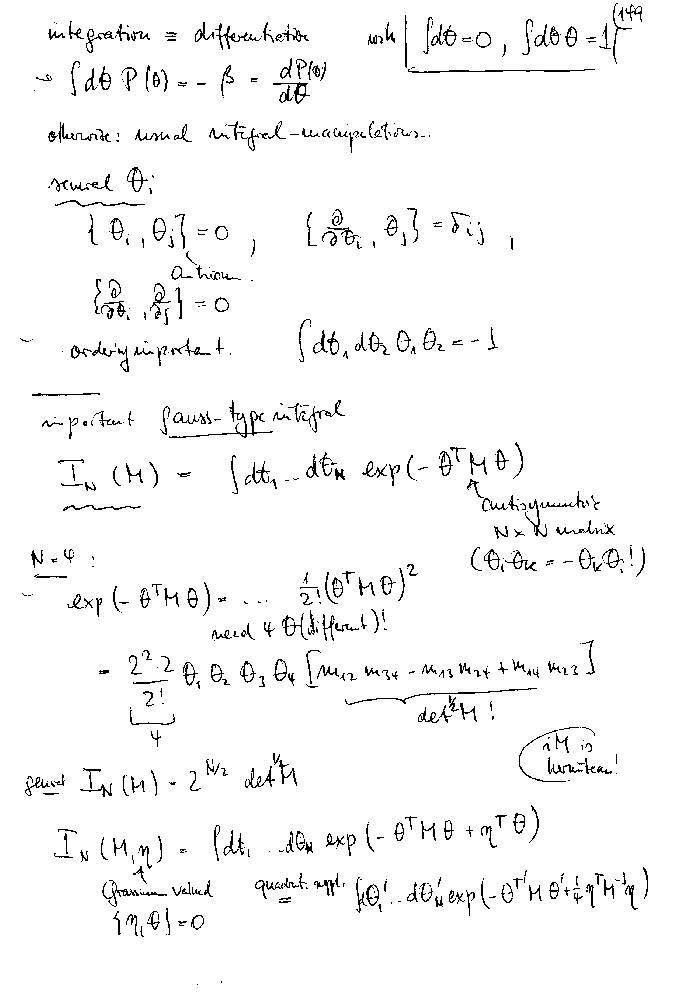 (149
integration ≡ differentiation with ∫dθ = 0 , ∫dθ θ = 1
∫dθ P(θ) = - β = dP(θ)/dθ
otherwise: usual integral-manipulations..
several θi
{θi , θj} = 0 , {∂/∂θi , θj} = δij ,
{∂/∂θi , ∂/∂j} = 0
ordering important. ∫dθ1 dθ2 θ1 θ2 = -1
important gauss-type integral
IN (M) = ∫dθ1 .. dθN exp(- θᵀ M θ)
antisymmetric
N×N matrix
(θi θk = - θk θi !)
N = 4 :
exp(- θᵀMθ) = ... 1/2! (θᵀMθ)²
need 4 θ(different)!
= 2² · 2/2! θ1 θ2 θ3 θ4 [m12 m34 - m13 m24 + m14 m23]
4 det^½ M !
iM is
hermitean!
general IN (M) = 2^N/2 det^½ M
IN (M, η) = ∫dθ1 .. dθN exp(- θᵀMθ + ηᵀθ)
Grassmann valued quadrat. suppl. ∫dθ1' .. dθN' exp(- θᵀ'Mθ' + ¼ ηᵀM⁻¹η)
{η, θ} = 0